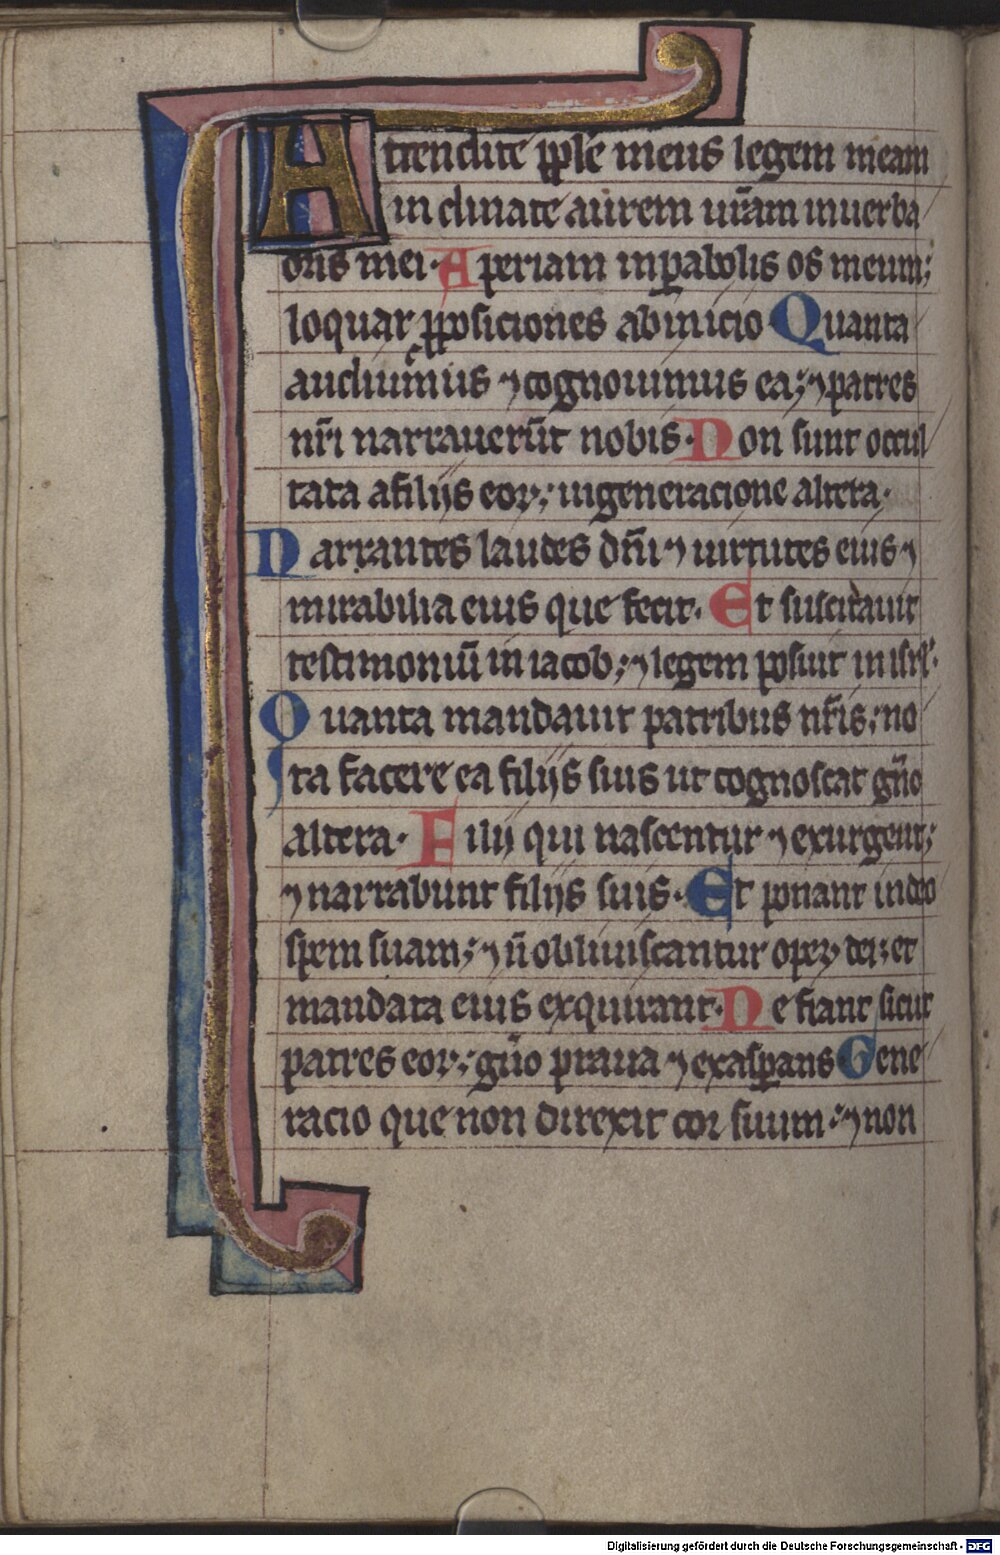 Attendite pple meus legem meam
in clinate aurem ur̄am inuerba
oris mei· Aperiam inpabolis os meum;
loquar pposiciones abinicio Quanta
audiuimus ⁊ cognouimus ea; ⁊ patres
nr̄i narrauerūt nobis· Non sunt occul
tata afilijs eoꝝ; ingeneracione altera·
Narrantes laudes dn̄i ⁊ uirtutes eius ⁊
mirabilia eius que fecit· Et suscitauit
testimoniū in iacob; ⁊ legem posuit in isrl̄·
Quanta mandauit patribus nr̄is; no
ta facere ea filijs suis ut cognoscat gn̄o
altera· Filij qui nascentur ⁊ exurgent;
⁊ narrabunt filijs suis· Et ponant indeo
spem suam; ⁊ n̄ obliuiscantur opeꝝ dei; et
mandata eius exquirant· Ne fiant sicut
patres eoꝝ; gn̄o praua ⁊ exaspans Gene
racio que non direxit cor suum; ⁊ non
Digitalisierung gefördert durch die Deutsche Forschungsgemeinschaft - DFG